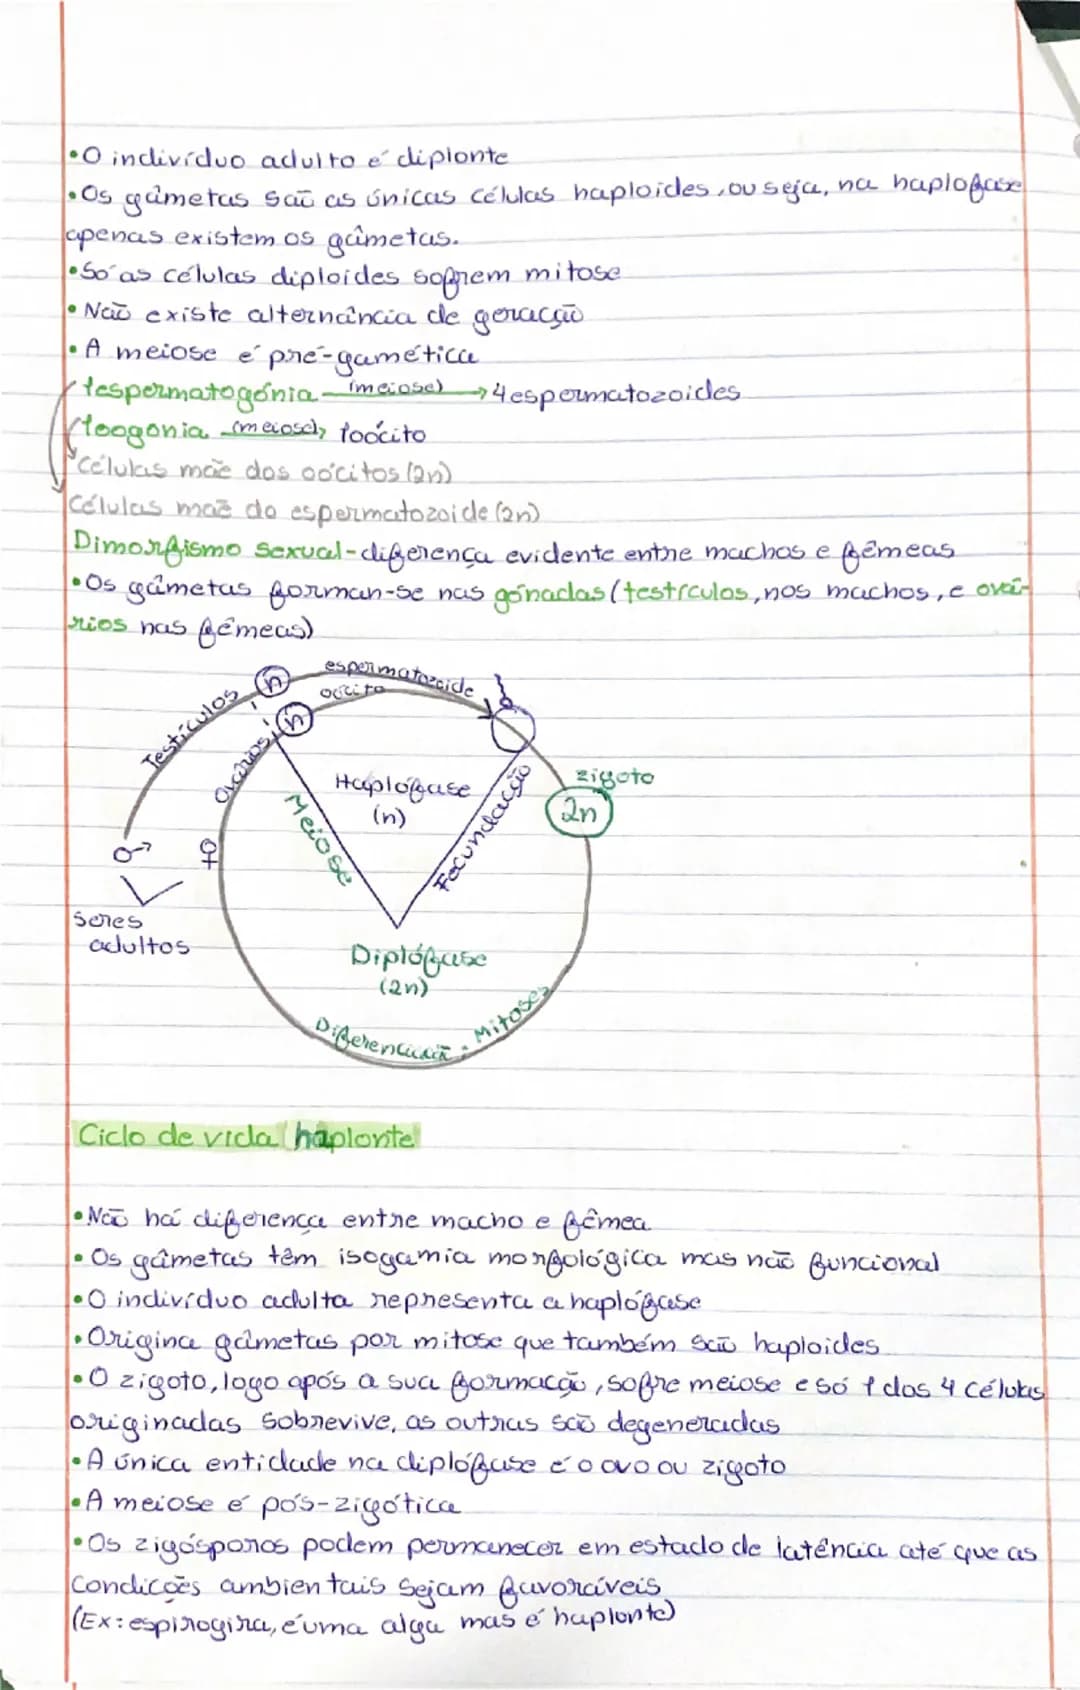 •O indivíduo adulto é diplonte
•Os gâmetas são as únicas células haploides, ou seja, na haplofase
apenas existem os gâmetas.
•Só as células diploides sofrem mitose
•Não existe alternância de geracção
•A meiose é pré-gamética
1espermatogónia (meiose)→4espermatozoides
1oogonia (meiose)→ 1oócito
Células mãe dos oócitos (2n)
Células mãe do espermatozoide (2n)
Dimorfismo sexual-diferença evidente entre machos e fêmeas
•Os gâmetas forman-se nas gónadas (testículos, nos machos, e ová-
rios nas fêmeas)
espermatozoide
oócito
n
n
Testículos
Ovários
zigoto
2n
Haplófase
(n)
Meiose
Fecundacção
♂
♀
Seres
adultos
Diplófase
(2n)
Diferenciacão . Mitoses
Ciclo de vida haplonte
•Não há diferença entre macho e fêmea
•Os gâmetas têm isogamia morfológica mas não funcional
•O indivíduo adulta representa a haplófase
•Origina gâmetas por mitose que também são haploides
•O zigoto, logo após a sua formacção, sofre meiose e só 1 dos 4 células
originadas sobrevive, as outras são degeneradas
•A única entidade na diplófase é o ovo ou zigoto
•A meiose é pós-zigótica
•Os zigósporos podem permanecer em estado de latência até que as
condicões ambientais sejam favoráveis
(Ex: espirogira, é uma alga mas é haplonte)